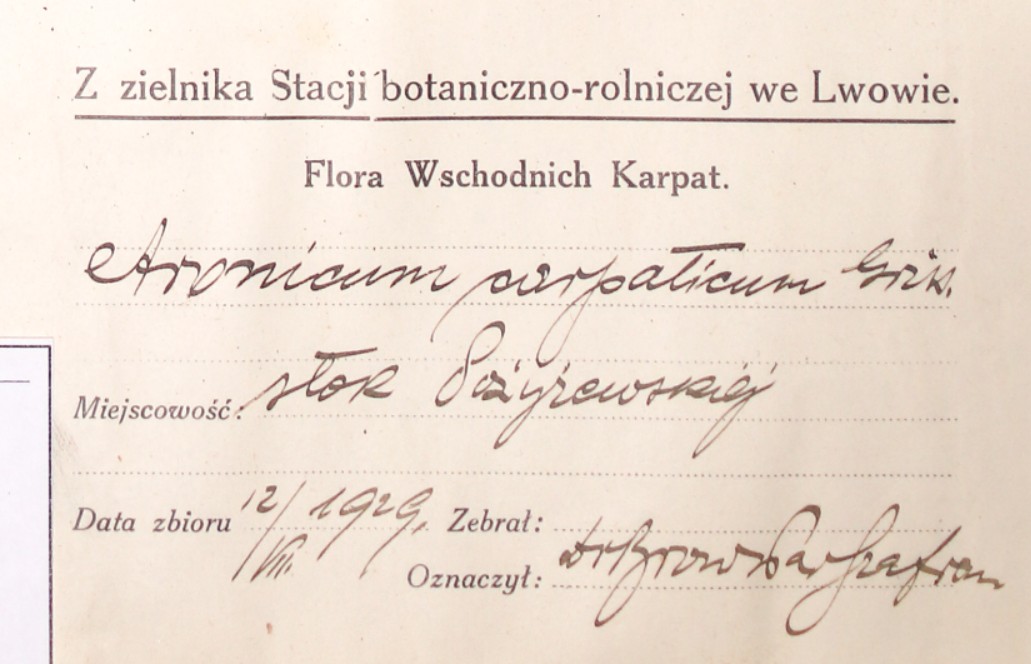 Z zielnika Stacji botaniczno-rolniczej we Lwowie.
Flora Wschodnich Karpat.
Aronicum carpaticum Gris.
Miejscowość: stok Pożyżewskiej
Data zbioru 12/VII. 1929. Zebrał:
Oznaczył: